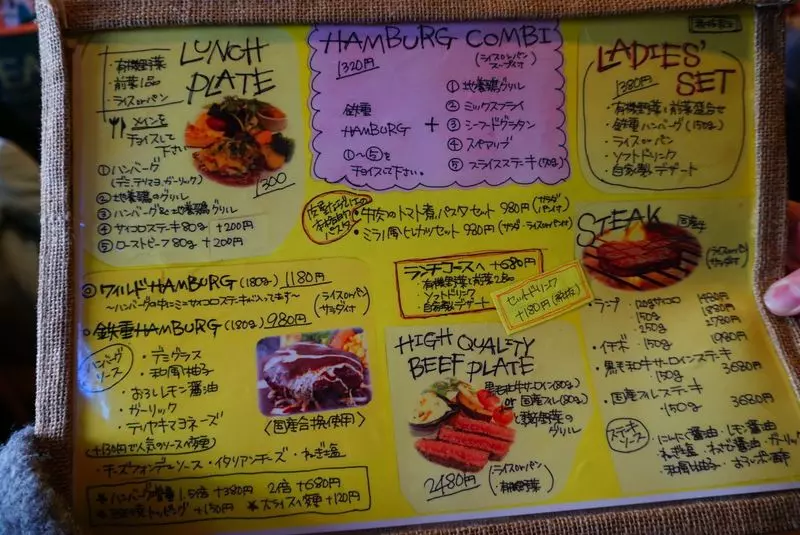 LUNCH
PLATE
・有機野菜
・前菜1品
・ライスorパン
メインを
チョイスして
下さい
①ハンバーグ
(デミ,テリマヨ,ガーリック)
②地養鶏のグリル
③ハンバーグ&地養鶏グリル
④サイコロステーキ80g +200円
⑤ローストビーフ80g +200円
1300
HAMBURG COMBI
1320円
(ライスorパン
スープ付)
鉄重
HAMBURG
+
①〜⑤を
チョイスして下さい。
① 地養鶏グリル
② ミックスフライ
③ シーフードグラタン
④ スペアリブ
⑤ スライスステーキ(70g)
LADIES'
SET
1380円
・有機野菜と前菜盛合せ
・鉄重ハンバーグ(150g)
・ライスorパン
・ソフトドリンク
・自家製デザート
パスタ
・牛肉のトマト煮パスタセット 980円(サラダ
パン付)
・ミラノ風ヒレカツセット 980円(サラダ・ライスorパン付)
ランチコースへ +680円
・有機野菜と前菜2品
・ソフトドリンク
・自家製デザート
セットドリンク
+180円(税抜)
STEAK
国産牛
(ライスorパン
サラダ付)
・ランプ 120gサイコロ 1480円
150g 1880円
250g 2780円
・イチボ 150g 1980円
・黒毛和牛サーロインステーキ
150g 3680円
・国産ヒレステーキ
150g 3680円
ステーキ
ソース
・にんにく醤油・レモン醤油
・ねぎ塩・わさび醤油・ガーリック
・和風柚子・おろしポン酢
ワイルドHAMBURG(180g) 1180円
〜ハンバーグの中にミニサイコロステーキが入ってます〜
(ライスorパン
サラダ付)
鉄重HAMBURG(180g) 980円
ハンバーグ
ソース
・デミグラス
・和風柚子
・おろしレモン醤油
・ガーリック
・テリヤキマヨネーズ
〈国産合挽使用〉
〈+130円で人気のソースへ変更〉
・チーズフォンデュソース・イタリアンチーズ・ねぎ塩
★ハンバーグ増量 1.5倍 +380円 2倍 +680円
トッピング +130円 ★スライスへ変更 +120円
HIGH QUALITY
BEEF PLATE
黒毛和牛サーロイン(80g)
or 国産ヒレ(80g)
と季節野菜の
グリル
2480円
(・ライスorパン
・有機野菜)